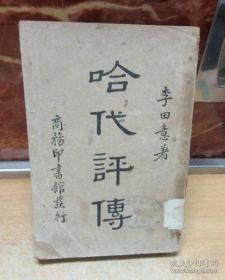 李田意著
哈代評傳
商務印書館發行